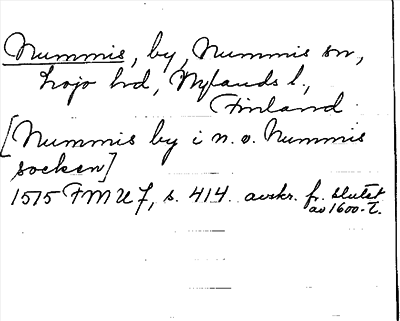 Nummis, by, Nummis sn,
Lojo hd, Nylands l.,
Finland
[Nummis by i n.o. Nummis
socken]
1515 FMU 7, s. 414 avskr. fr. slutet
av 1600-t.